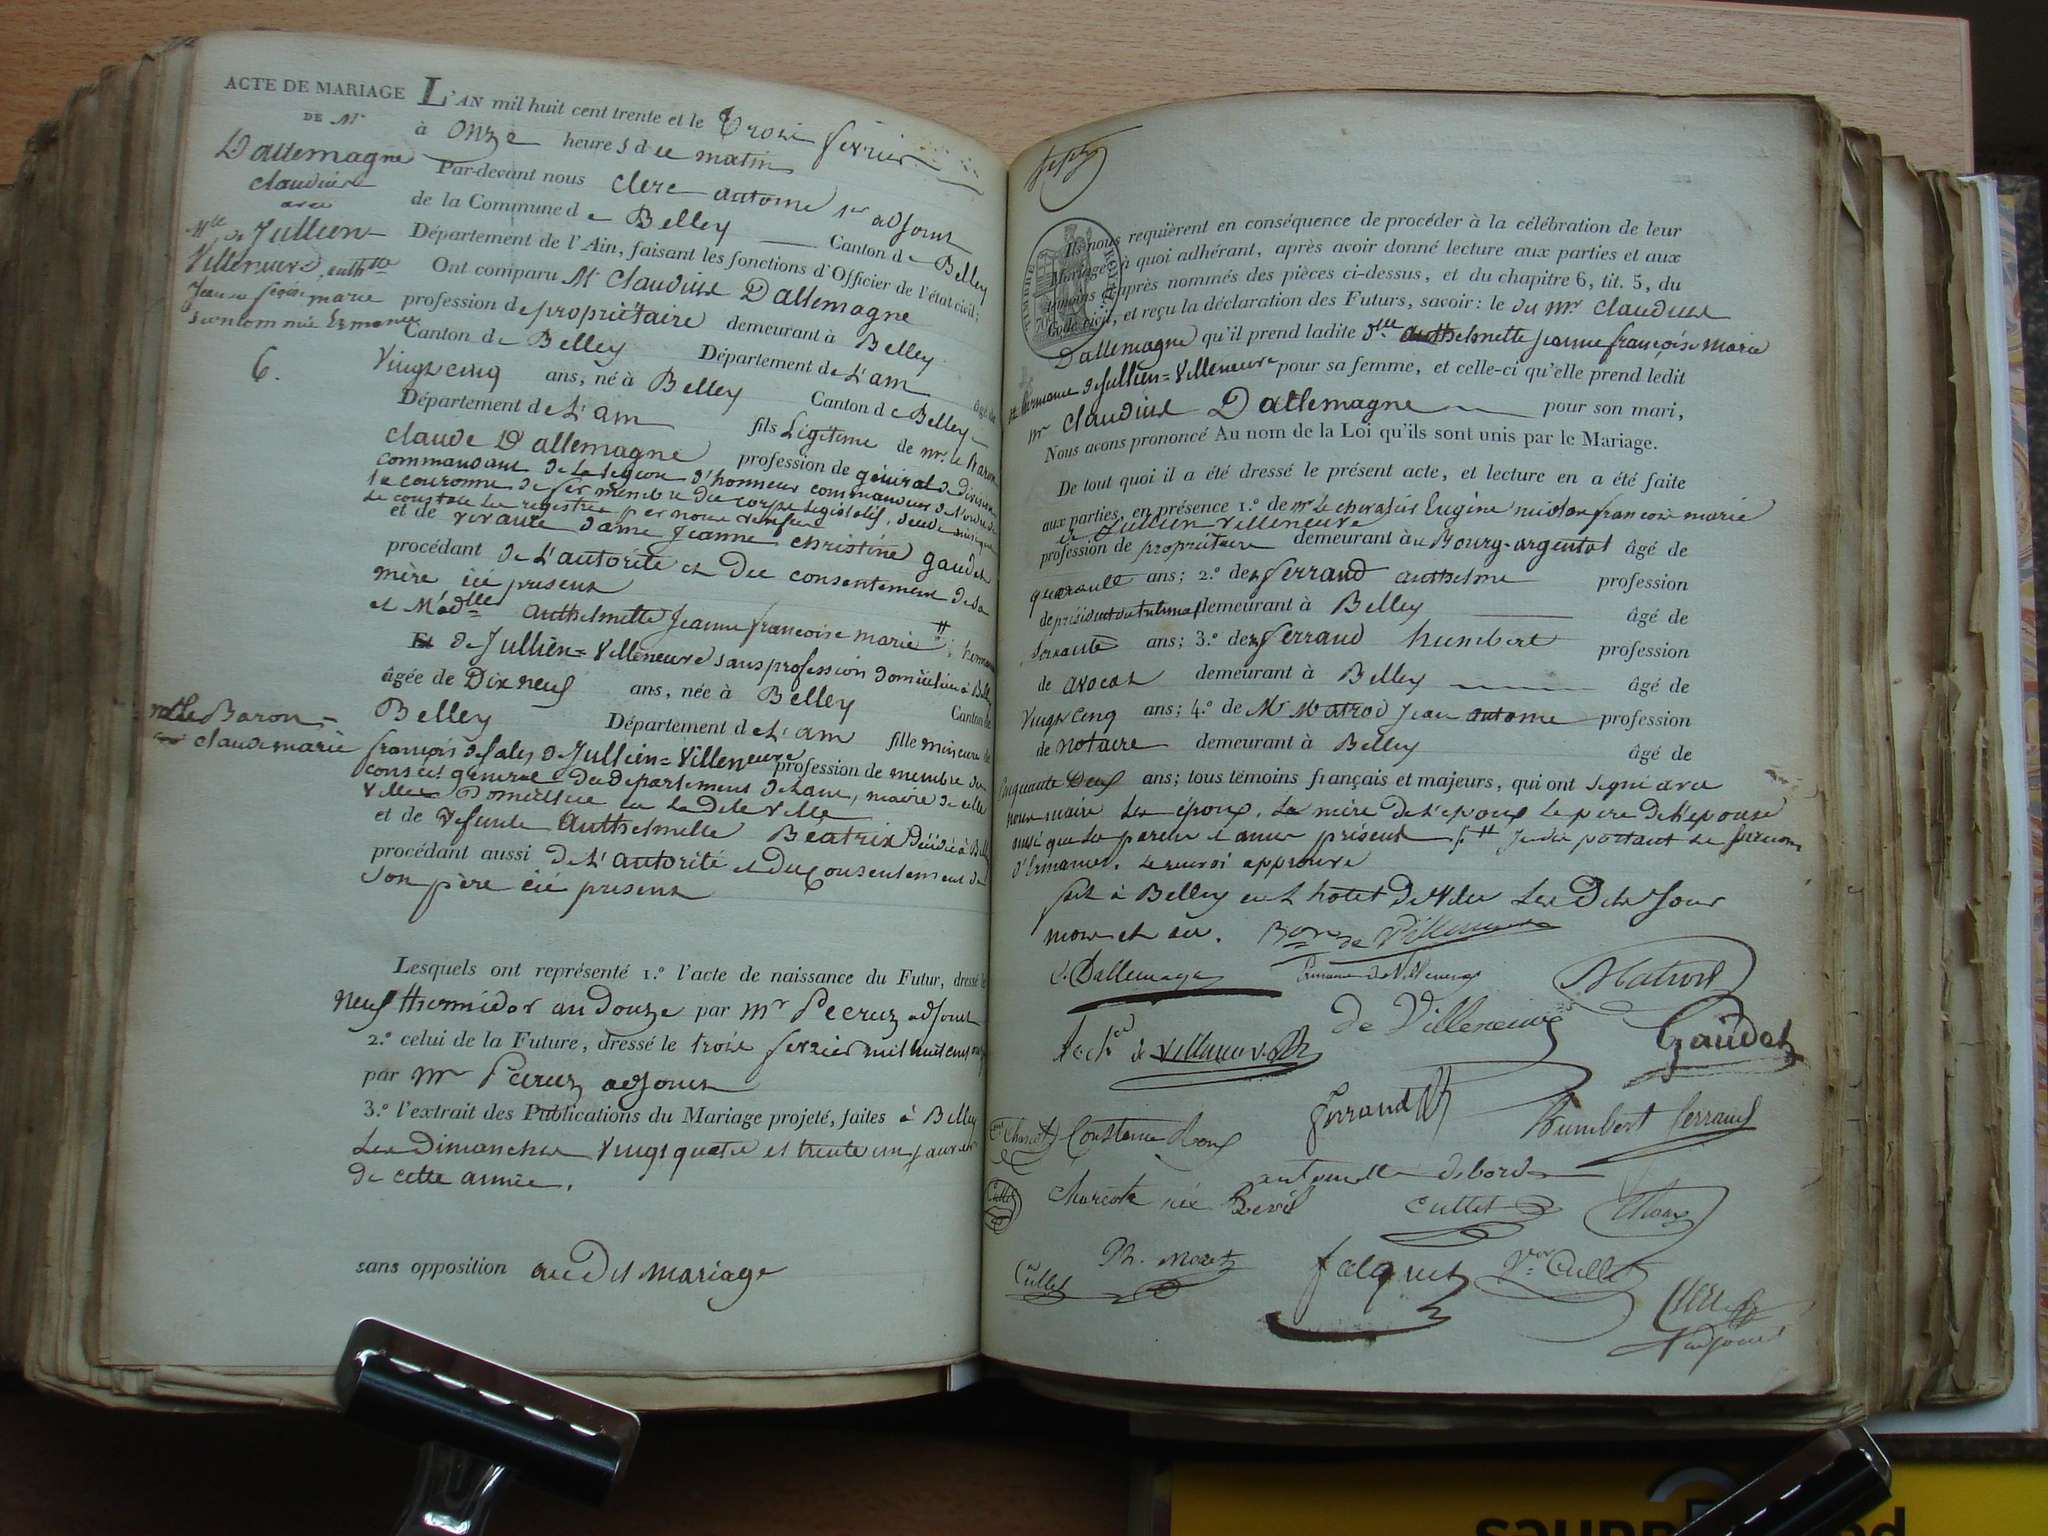 ACTE DE MARIAGE
DE Mr
Dallemagne
Claudius
avec
Mlle de Jullien
Villeneuve, anth
Jeanne françoise marie
surnommée Ermance
6.
L'AN mil huit cent trente et le Trois février
à Onze heures du matin
Par-devant nous Clerc antoine 1er adjoint
de la Commune de Belley Canton de Belley
Département de l'Ain, faisant les fonctions d'Officier de l'état civil;
Ont comparu Mr Claudius Dallemagne
profession de propriétaire demeurant à Belley
Canton de Belley Département de L'ain âgé de
Vingt cinq ans, né à Belley Canton de Belley
Département de L'ain fils Légitime de mr. le Baron
Claude Dallemagne profession de général de division
commandant de la légion d'honneur commandeur de l'ordre de
la couronne de fer membre du corps législatif, décédé
et de vivante dame Jeanne Christine Gaudet
procédant de L'autorité et du consentement de sa
mère ici présente
et Madlle anthelmette Jeanne françoise marie
Et de Jullien=Villeneuve sans profession domiciliée à Belley
âgée de Dix neuf ans, née à Belley Canton de
Belley Département de L'ain fille mineure de
mr le Baron
claude marie
françois de sales de Jullien=Villeneuve profession de membre du
conseil général du département de Lain, maire de cette
Ville Domicilié en la dite ville
et de defunte anthelmette Béatrix Décédée à
procédant aussi de L'autorité et du Consentement de
son père ici présent
Lesquels ont représenté 1.º l'acte de naissance du Futur, dressé le
neuf thermidor an Douze par mr Pecruz adjoint
2.º celui de la Future, dressé le trois février mil huit cent onze
par mr Pecruz adjoint
3.º l'extrait des Publications du Mariage projeté, faites à Belley
Les Dimanches Vingt quatre et trente un janvier
de cette année.
sans opposition au Dit mariage
TIMBRE ROYAL
Ils nous requièrent en conséquence de procéder à la célébration de leur
Mariage, à quoi adhérant, après avoir donné lecture aux parties et aux
témoins ci-après nommés des pièces ci-dessus, et du chapitre 6, tit. 5, du
Code civil, et reçu la déclaration des Futurs, savoir: le du mr. Claudius
Dallemagne qu'il prend ladite dlle anthelmette Jeanne françoise marie
Hermance de Jullien=Villeneuve pour sa femme, et celle-ci qu'elle prend ledit
mr Claudius Dallemagne pour son mari,
Nous avons prononcé Au nom de la Loi qu'ils sont unis par le Mariage.
De tout quoi il a été dressé le présent acte, et lecture en a été faite
aux parties, en présence 1.º de mr Le chevalier Eugène françois marie
de Jullien Villeneuve
profession de propriétaire demeurant à Bourg-argental âgé de
quarante ans; 2.º de mr ferrand anthelme profession
de président du tribunal demeurant à Belley âgé de
soixante ans; 3.º de mr ferrand humbert profession
de avocat demeurant à Belley âgé de
Vingt Cinq ans; 4.º de Mr Matrod Jean antoine profession
de notaire demeurant à Belley âgé de
Cinquante Deux ans; tous témoins français et majeurs, qui ont signé avec
nous maire Les époux, La mère de l'époux Le père de l'épouse
ainsi que les parens et amis présents portant le surnom
d'Ermance. Le renvoi approuvé
fait à Belley en L'hotel de Ville Les Dits Jour
mois et an. Bon de Villeneuve
C. Dallemagne Ermance de Villeneuve Matrod
de Villeneuve
de Villeneuve Gaudet
Ferrand
Humbert Ferrand
Constance Roux
antoinette debord
Charcot née Cullet
Cullet
Ph. Moret Jacquet Cullet
Cullet
Clerc
adjoint